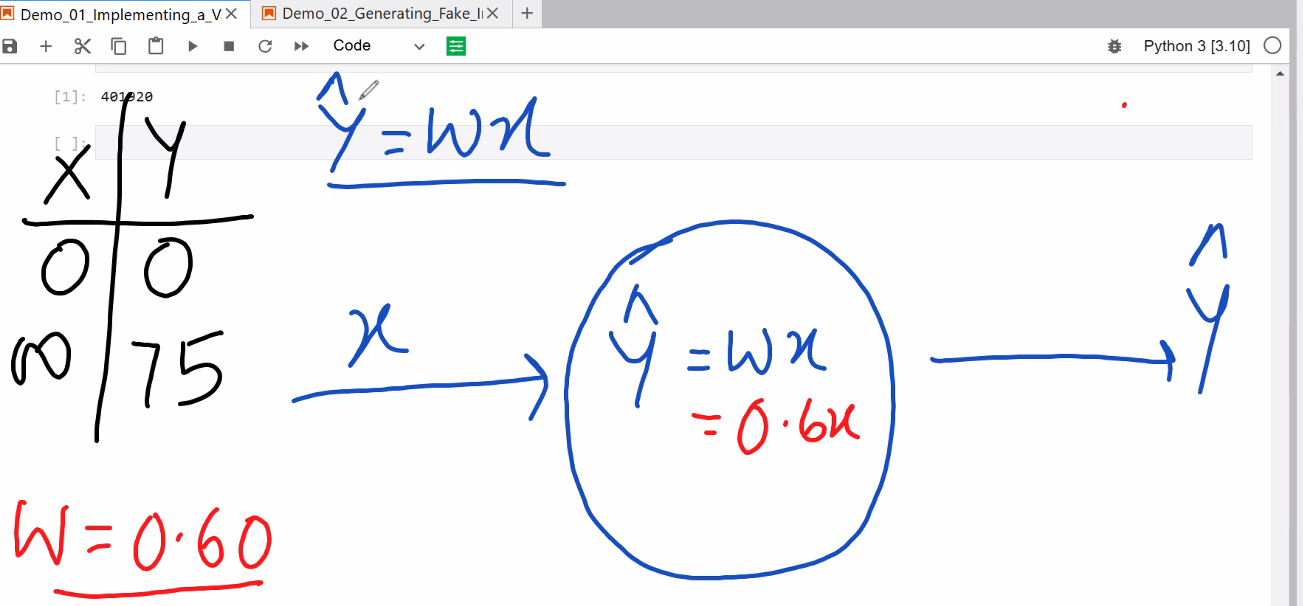 Demo_01_Implementing_a_V
Demo_02_Generating_Fake_I
Code
Python 3 [3.10]
[1]: 401920
[ ]:
Ŷ = Wx
X Y
0 0
75
x
Ŷ = Wx
= 0.6x
Ŷ
W = 0.60